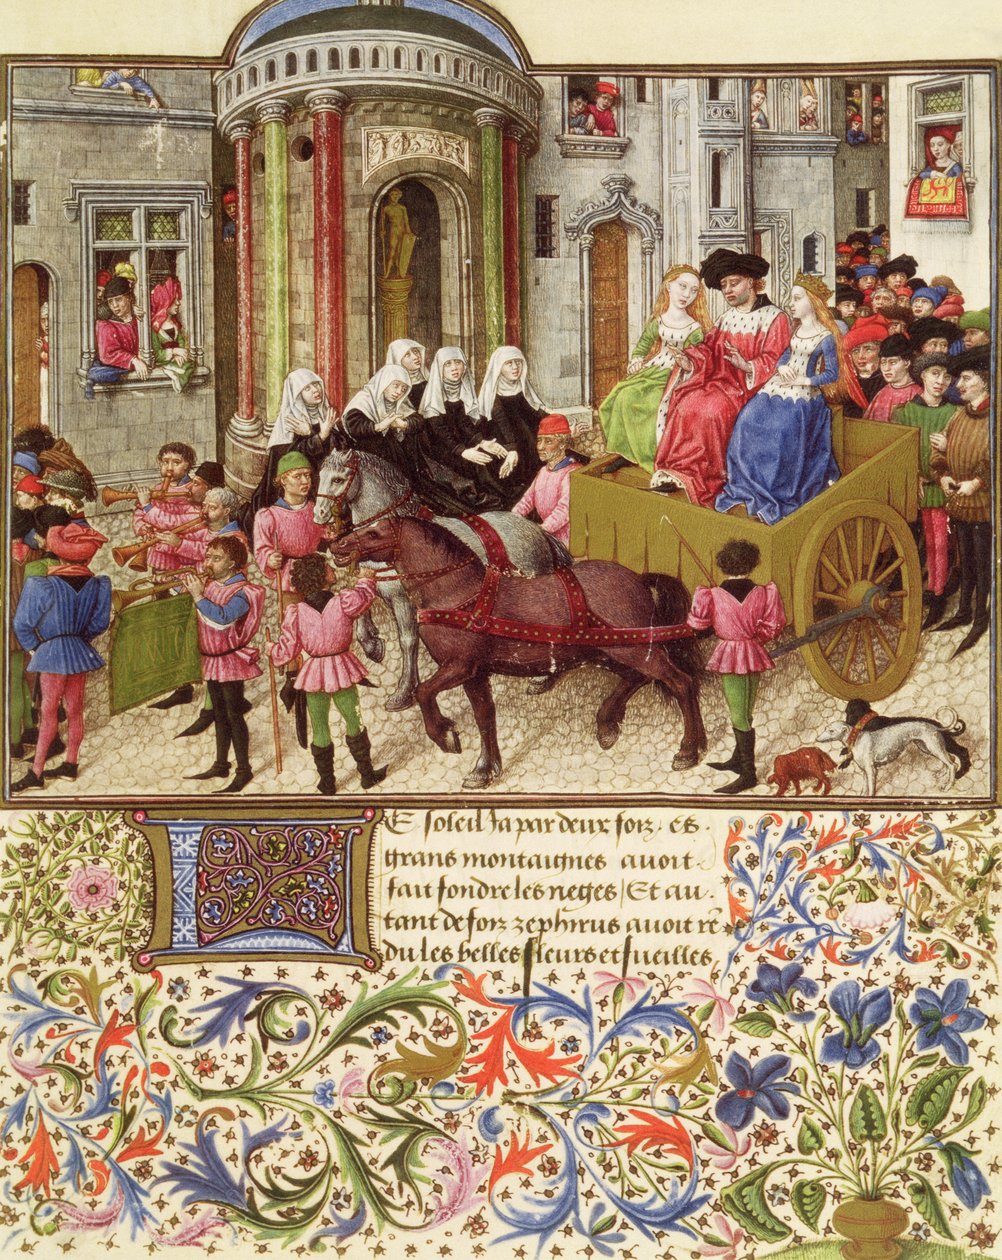 E soleil Ja par deux foiz es
grans montaignes auoit
fait fondre les neges Et au
tant de foiz zephirus auoit rē
du les belles fleurs et fueilles